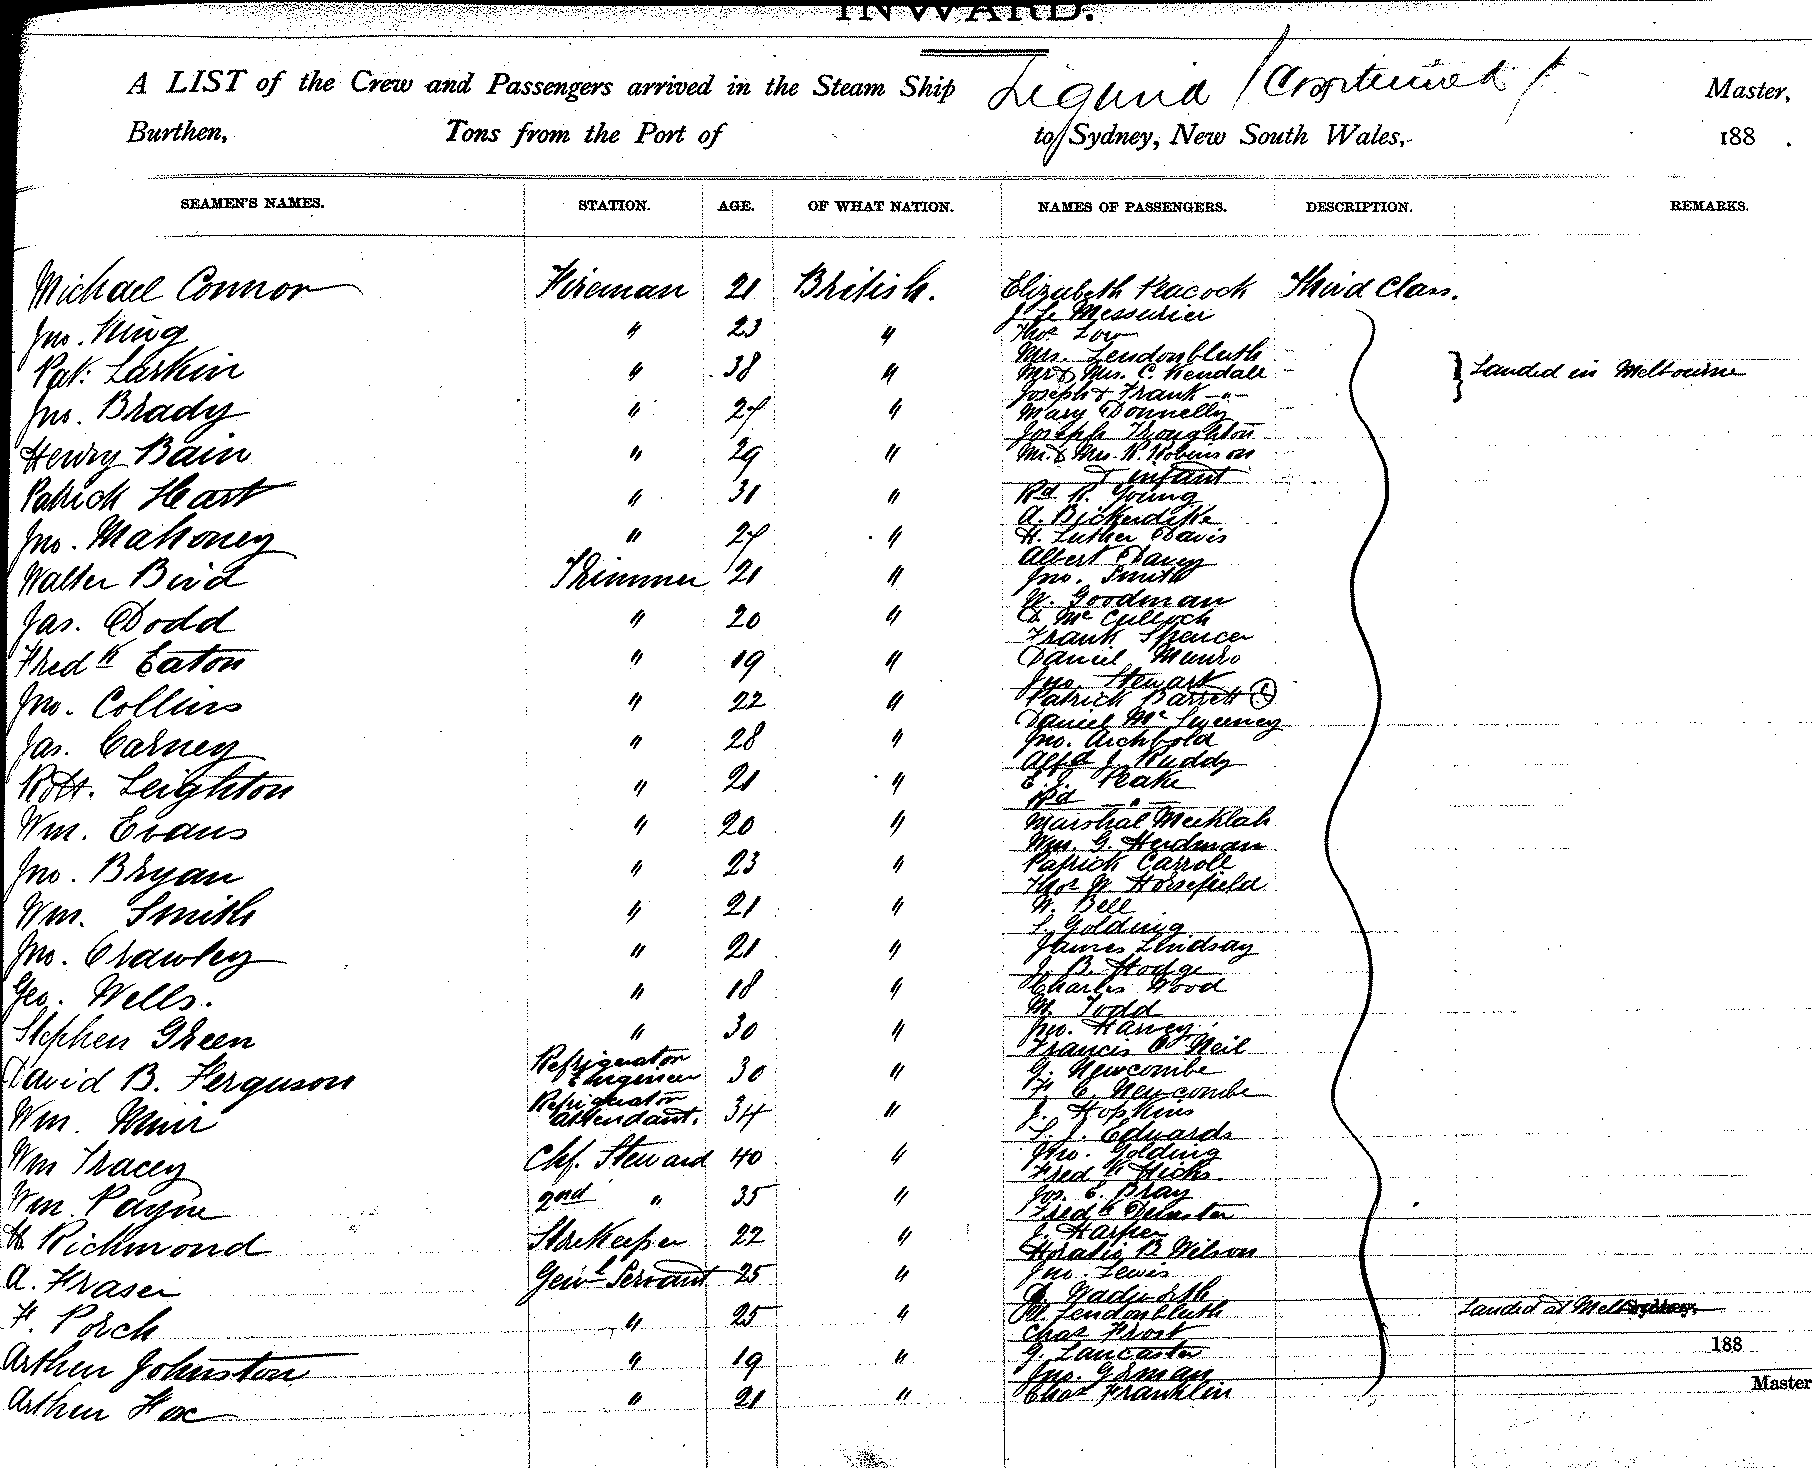 INWARD.
A LIST of the Crew and Passengers arrived in the Steam Ship Liguria (Continued) Master,
Burthen, Tons from the Port of to Sydney, New South Wales, 188 .
SEAMEN'S NAMES. STATION. AGE. OF WHAT NATION. NAMES OF PASSENGERS. DESCRIPTION. REMARKS.
Michael Connor Fireman 21 British.
Jno. King " 23 "
Pat. Larkin " 38 "
Jno. Brady " 27 "
Henry Bain " 29 "
Patrick Hart " 31 "
Jno. Mahoney " 27 "
Walter Bird Trimmer 21 "
Jas. Dodd " 20 "
Fredk Eaton " 19 "
Jno. Collins " 22 "
Jas. Carney " 28 "
Robt. Leighton " 21 "
Wm. Evans " 20 "
Jno. Bryan " 23 "
Wm. Smith " 21 "
Jno. Crawley " 21 "
Geo. Wells. " 18 "
Stephen Green " 30 "
David B. Ferguson Refrigerator Engineer 30 "
Wm. Muir Refrigerator Attendant. 34 "
Wm Tracey Chf. Steward 40 "
Wm. Payne 2nd " 35 "
H. Richmond StreKeeper 22 "
A. Fraser Genl Servant 25 "
F. Porch " 25 "
Arthur Johnston " 19 "
Arthur Fox " 21 "
Elizabeth Peacock Third Class.
J. Le Messurier
Thos Low
Mrs. Lendonbluth
Mr & Mrs. C. Kendall } Landed in Melbourne
Joseph & Frank — " —
Mary Donnelly
Joseph Troughton
Mr. & Mrs. R. Robinson
& infant
Rd. R. Young
A. Bickerdike
H. Luther Davis
Albert Davey
Jno. Smith
W. Goodman
D. McCulloch
Frank Spencer
Daniel Munro
Jno. Stewart
Patrick Barrett
Daniel McSweeney
Jno. Archbold
Alfd J. Ruddy
E. J. Peake
"
Marshal Meeklah
Wm. G. Herdman
Patrick Carroll
Thos W. Horsefield
W. Bell
S. Golding
James Lindsay
J. B. Hodge
Charles Wood
M. Todd
Jno. Harvey
Francis O'Neil
G. Newcombe
F. C. Newcombe
J. Hopkins
S. J. Edwards
Jno. Golding
Fredk Hicks
Jos. E. Bray
Fredk
J. Harper
Horatio B. Wilson
Jno. Lewis
D. Wadworth
W. Lendonbluth Landed at Melb
Chas Frost
G. Lancaster 188
Jno. Gorman
Chas Franklin Master